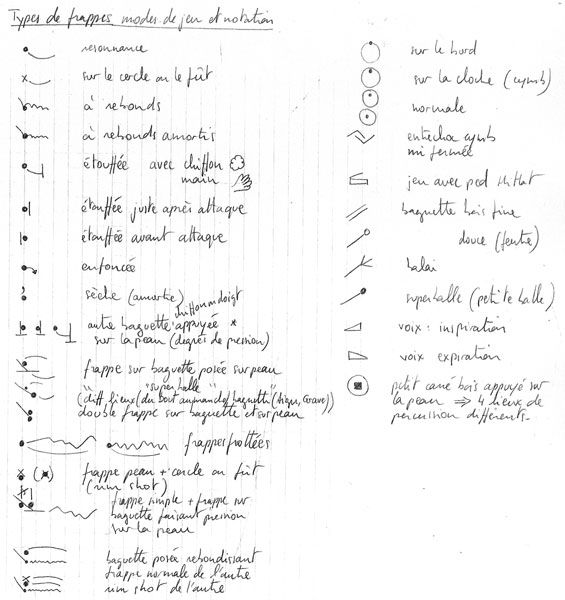 Types de frappes, modes de jeu et notation
résonnance
sur le cercle ou le fût
à rebonds
à rebonds amortis
étouffée avec chiffon
main
étouffée juste après attaque
étouffée avant attaque
enfoncée
sèche (amortie)
chiffon ou doigt
autre baguette appuyée *
sur la peau (degrés de pression)
frappe sur baguette posée sur peau
"superballe"
(diff. lieux (du bout au manche) baguette (aigu, grave))
double frappe sur baguette et sur peau
frappes frottées
frappe peau + cercle ou fût
(rim shot)
frappe simple + frappe sur
baguette faisant pression
sur la peau
baguette posée rebondissant
frappe normale de l'autre
rim shot de l'autre
sur le bord
sur la cloche (cymb)
normale
entrechoc cymb
mi fermée
jeu avec pied hithat
baguette bois fine
douce (feutre)
balai
superballe (petite balle)
voix : inspiration
voix expiration
petit carré bois appuyé sur
la peau ⇒ 4 lieux de
percussion différents.